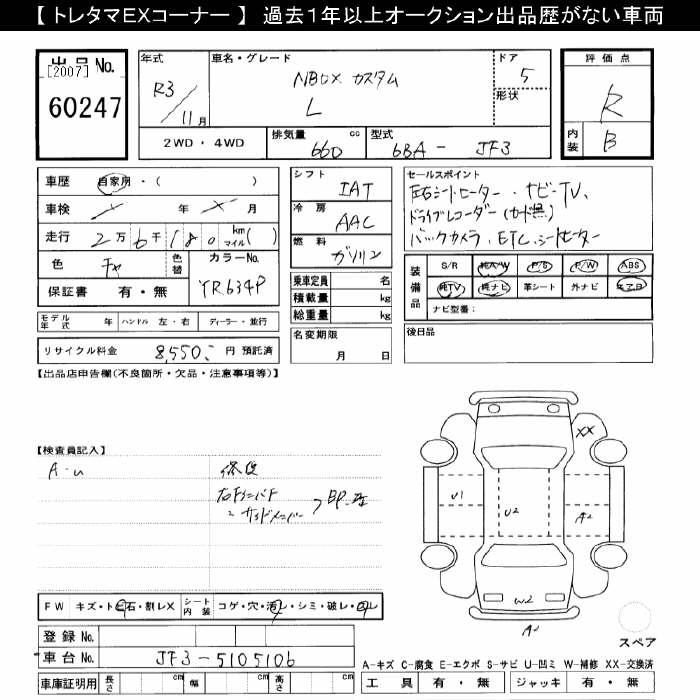 【 トレタマEXコーナー 】 過去1年以上オークション出品歴がない車両
出品No.
[2007]
60247
年式
R3/11月
車名・グレード
NBOX カスタム
L
ドア
5
形状
評価点
R
内装
B
2WD・4WD
排気量
660
cc
型式
6BA - JF3
車歴
自家用・( )
車検
年 月
走行
2万6千180 km マイル( )
色
色替
カラーNo.
YR634P
保証書
有・無
シフト
IAT
冷房
AAC
燃料
ガソリン
乗車定員 名
積載量 kg
総重量 kg
名変期限
月 日
セールスポイント
左右シートヒーター・ナビ・TV、
ドライブレコーダー
バックカメラ、ETC、シートヒーター
装備品
S/R 純A/W P/S P/W ABS
純TV 純ナビ 革シート 外ナビ エアB
ナビ型番:
後日品
モデル年式 年 ハンドル 左・右 ディーラー・並行
リサイクル料金 8,550 円 預託済
【出品店申告欄(不良箇所・欠品・注意事項等)】
【検査員記入】
A-U
修復
XX
U1
U2
A2
W2
A2
スペア
FW キズ・トビ石・割レX
シート内装 コゲ・穴・汚レ・シミ・破レ・凹レ
登録No.
車台No. JF3-5105106
車庫証明用 長さ cm 幅 cm 高さ cm
A-キズ C-腐食 E-エクボ S-サビ U-凹ミ W-補修 XX-交換済
工具 有・無 ジャッキ 有・無